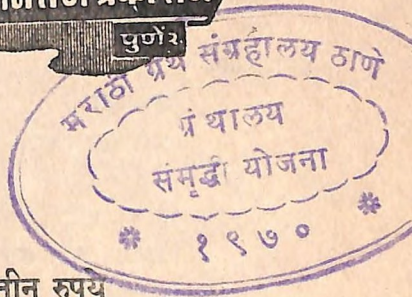 पुणें २
मराठी ग्रंथ संग्रहालय ठाणे
ग्रंथालय
संमृद्धी योजना
१९७०
तीन रुपये